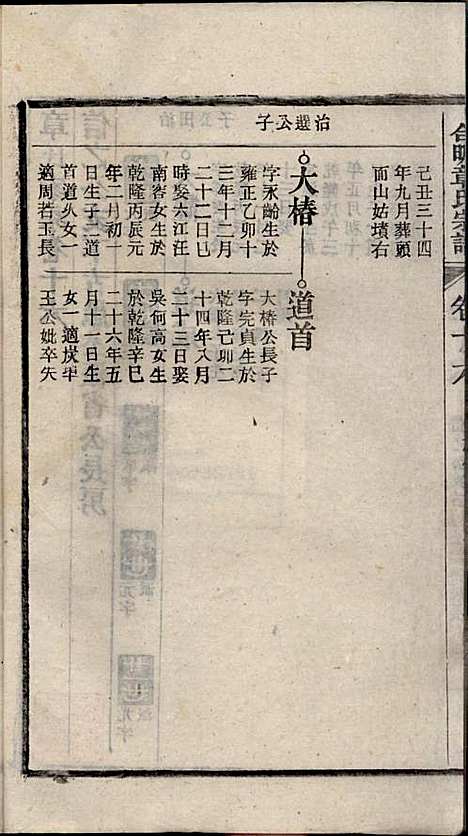 章氏宗譜
卷十六
治選公子
己丑三十四
年九月葬頭
面山姑墳右
大椿
字永齡生於
雍正乙卯十
三年十二月
二十二日巳
時娶六江汪
南客女生於
乾隆丙辰元
年二月初一
日生子二道
首道火女一
適周若玉長
道首
大椿公長子
字完貞生於
乾隆己卯二
十四年八月
二十三日娶
吳何高女生
於乾隆辛巳
二十六年五
月十一日生
女一適
王公妣卒失